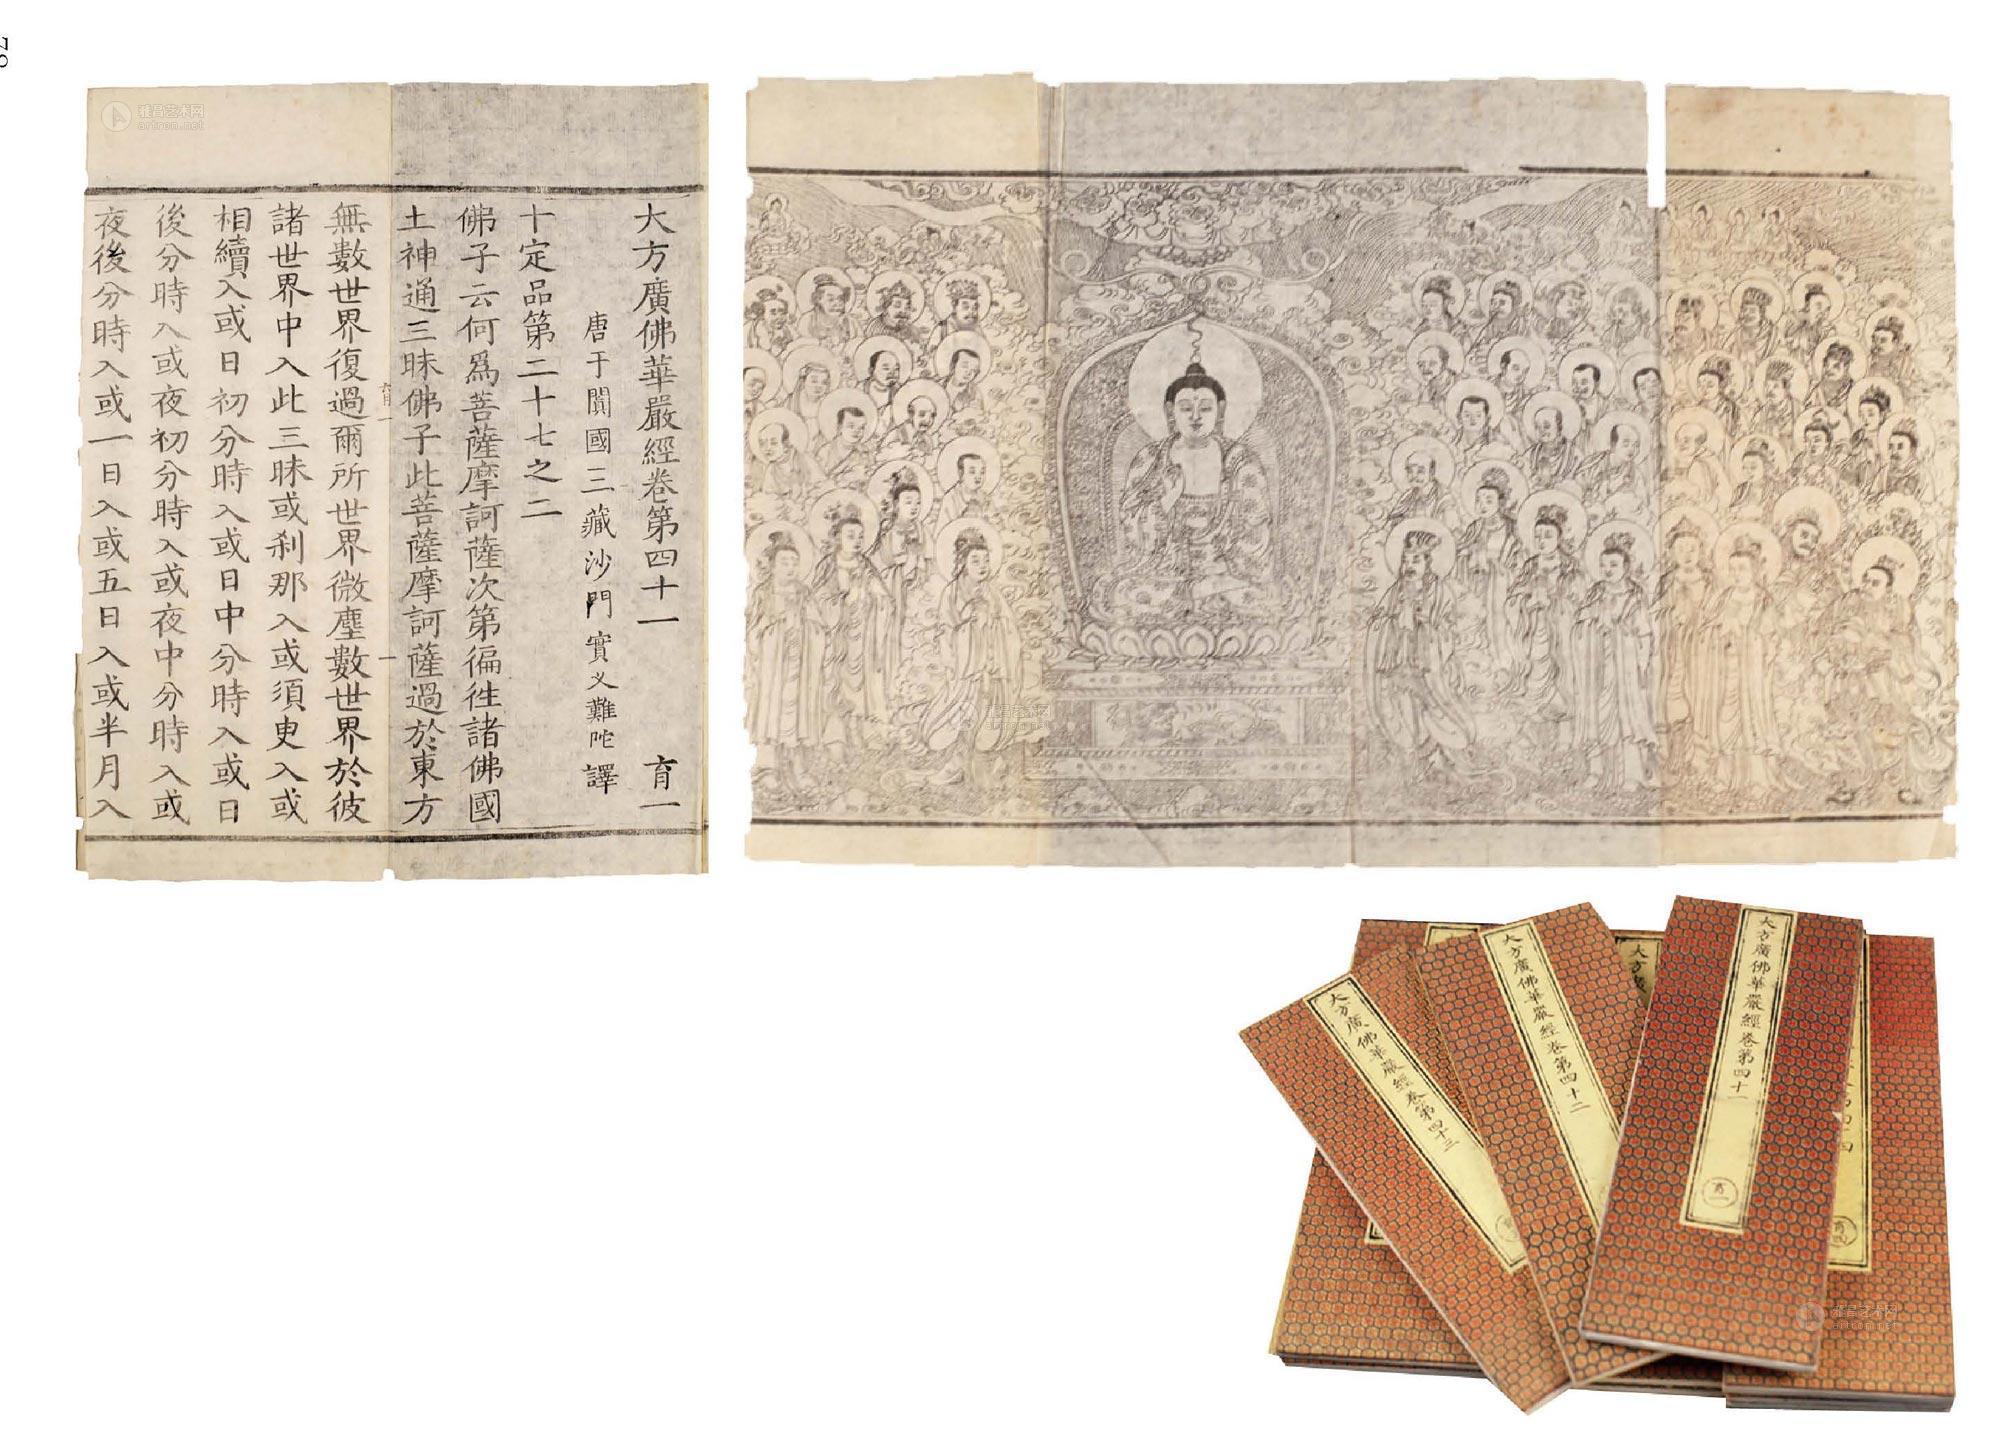 78
大方廣佛華嚴經卷第四十一 育一
唐于闐國三藏沙門實叉難陀譯
十定品第二十七之二
佛子云何爲菩薩摩訶薩次第徧徃諸佛國
土神通三昧佛子此菩薩摩訶薩過於東方
無數世界復過爾所世界微塵數世界於彼
諸世界中入此三昧或刹那入或須臾入或
相續入或日初分時入或日中分時入或日
後分時入或夜初分時入或夜中分時入或
夜後分時入或一日入或五日入或半月入
大方廣佛華嚴經卷第四十三
大方廣佛華嚴經卷第四十二
大方廣
大方廣佛華嚴經卷第四十一
育一
育四
雅昌艺术网
artron.net
雅昌艺术网
artron.net
雅昌艺术网
artron.net